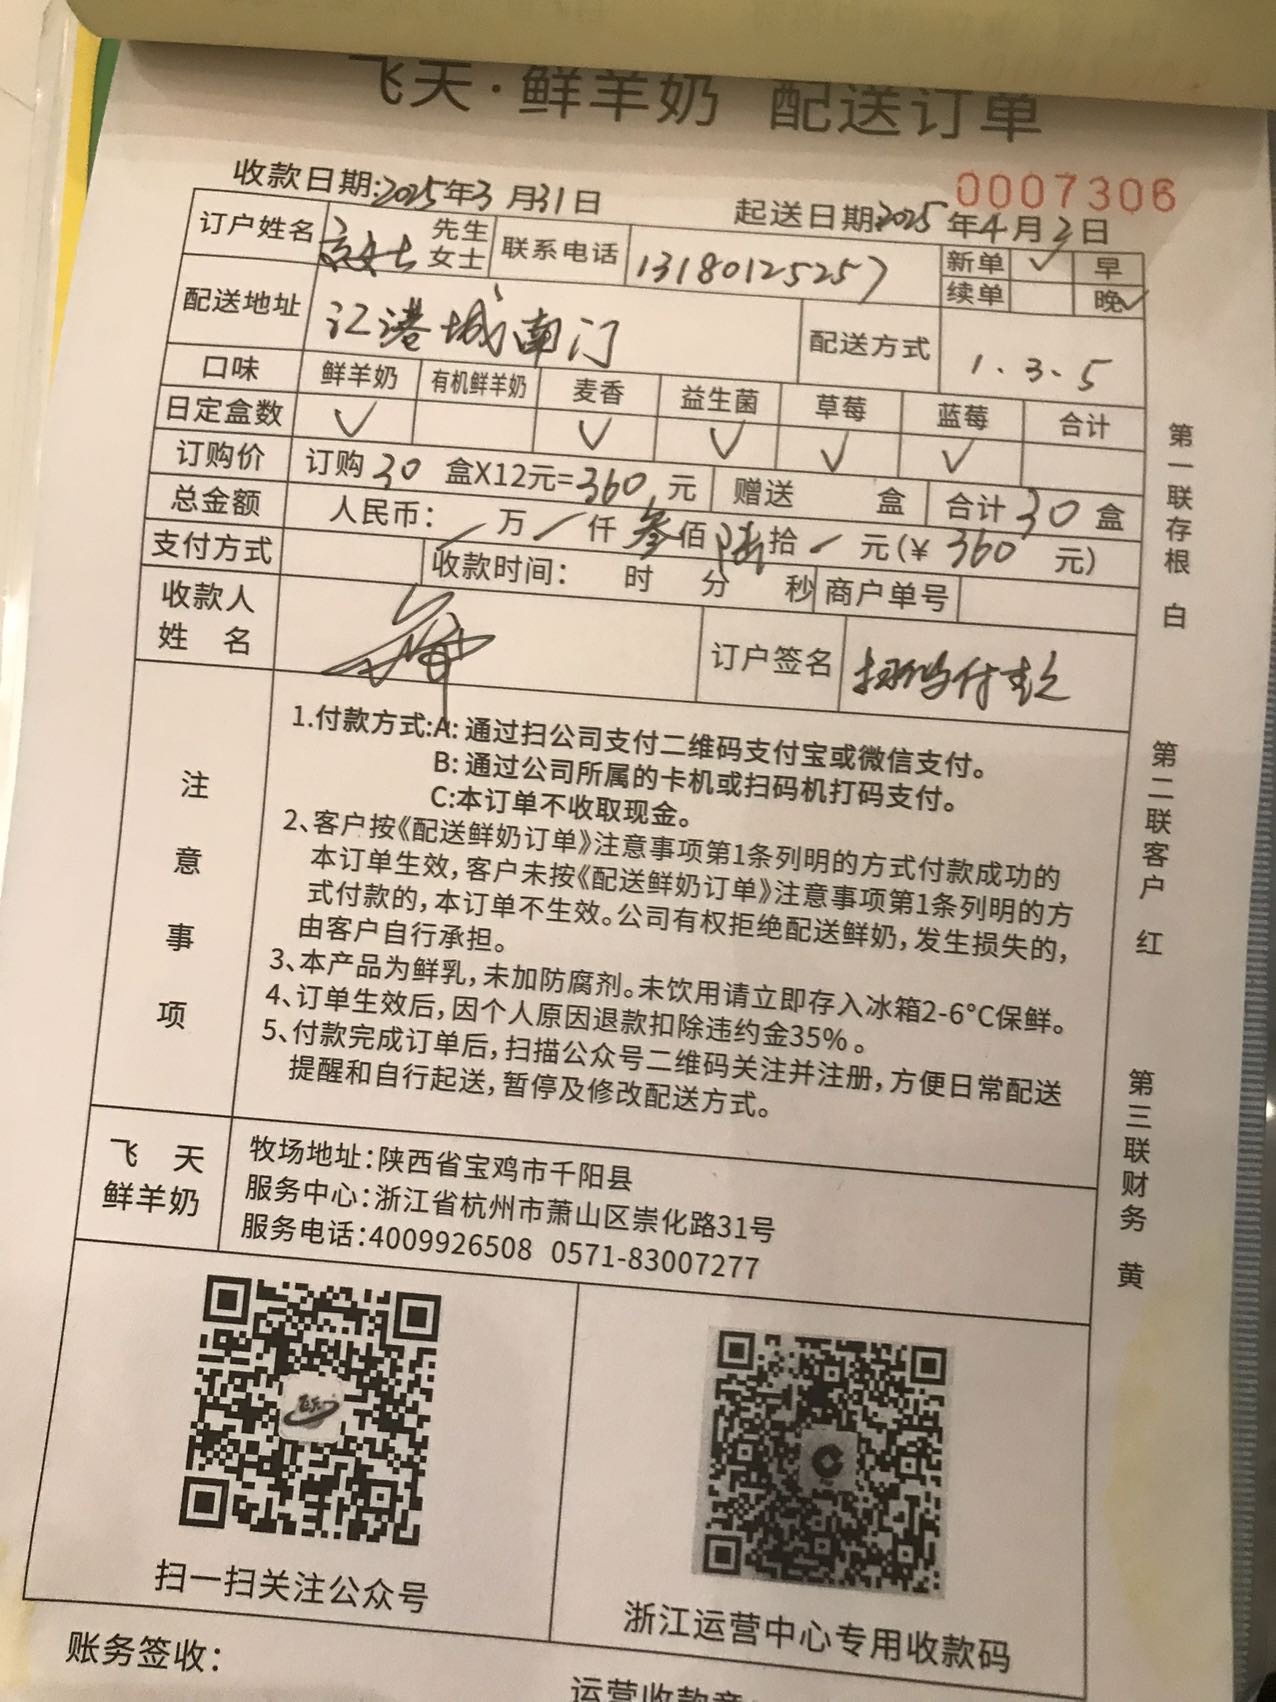 飞天·鲜羊奶 配送订单
收款日期:2025年3月31日 0007306
起送日期2025年4月2日
订户姓名 女士 先生 女士 联系电话 13180125257 新单 ✓ 早
续单 晚✓
配送地址 江港城南门 配送方式 1.3.5
口味 鲜羊奶 有机鲜羊奶 麦香 益生菌 草莓 蓝莓 合计
日定盒数 ✓ ✓ ✓ ✓ ✓
订购价 订购30盒X12元=360元 赠送 盒 合计30盒
总金额 人民币: / 万 / 仟 叁佰陆拾 / 元(¥ 360 元)
支付方式 收款时间: 时 分 秒 商户单号
收款人姓名 订户签名 扫码付款
注意事项
1.付款方式:A: 通过扫公司支付二维码支付宝或微信支付。
B: 通过公司所属的卡机或扫码机打码支付。
C:本订单不收取现金。
2、客户按《配送鲜奶订单》注意事项第1条列明的方式付款成功的
本订单生效,客户未按《配送鲜奶订单》注意事项第1条列明的方
式付款的,本订单不生效。公司有权拒绝配送鲜奶,发生损失的,
由客户自行承担。
3、本产品为鲜乳,未加防腐剂。未饮用请立即存入冰箱2-6°C保鲜。
4、订单生效后,因个人原因退款扣除违约金35%。
5、付款完成订单后,扫描公众号二维码关注并注册,方便日常配送
提醒和自行起送,暂停及修改配送方式。
飞天
鲜羊奶
牧场地址:陕西省宝鸡市千阳县
服务中心:浙江省杭州市萧山区崇化路31号
服务电话:4009926508 0571-83007277
扫一扫关注公众号
浙江运营中心专用收款码
账务签收:
运营收款章
第一联存根 白
第二联客户 红
第三联财务 黄